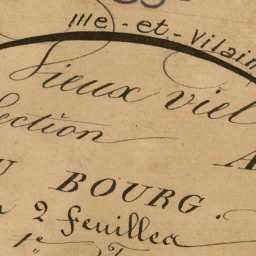 Ille-et-Vilain
Vieux viel
Section A
U BOURG.
2 feuilles
1e